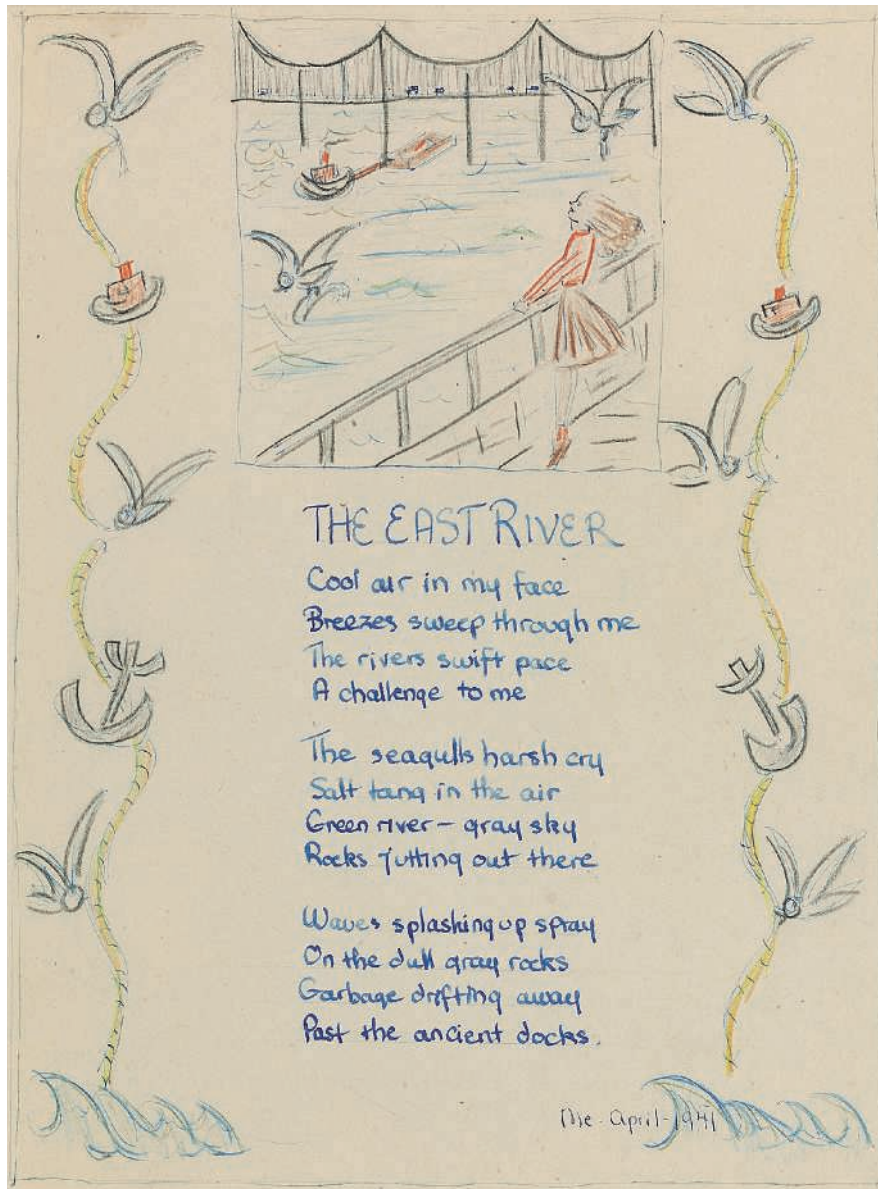 THE EAST RIVER
Cool air in my face
Breezes sweep through me
The rivers swift pace
A challenge to me
The seagulls harsh cry
Salt tang in the air
Green river – gray sky
Rocks jutting out there
Waves splashing up spray
On the dull gray rocks
Garbage drifting away
Past the ancient docks.
Me - April - 1941